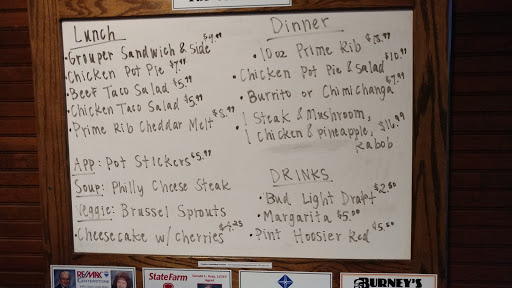 Lunch
• Grouper Sandwich & Side $9.99
• Chicken Pot Pie $7.99
• Beef Taco Salad $5.99
• Chicken Taco Salad $5.99
• Prime Rib Cheddar Melt $8.99
App: Pot Stickers $5.99
Soup: Philly Cheese Steak
Veggie: Brussel Sprouts
• Cheesecake w/ Cherries $4.25
Dinner
• 10 oz Prime Rib
• Chicken Pot Pie & Salad $10.99
• Burrito or Chimichanga $7.99
1 Steak & Mushroom,
1 Chicken & Pineapple, $16.99
Kabob
DRINKS
• Bud Light Draft $2.50
• Margarita $5.00
• Pint Hoosier Red $5.50
RE/MAX
State Farm
BURNEY'S